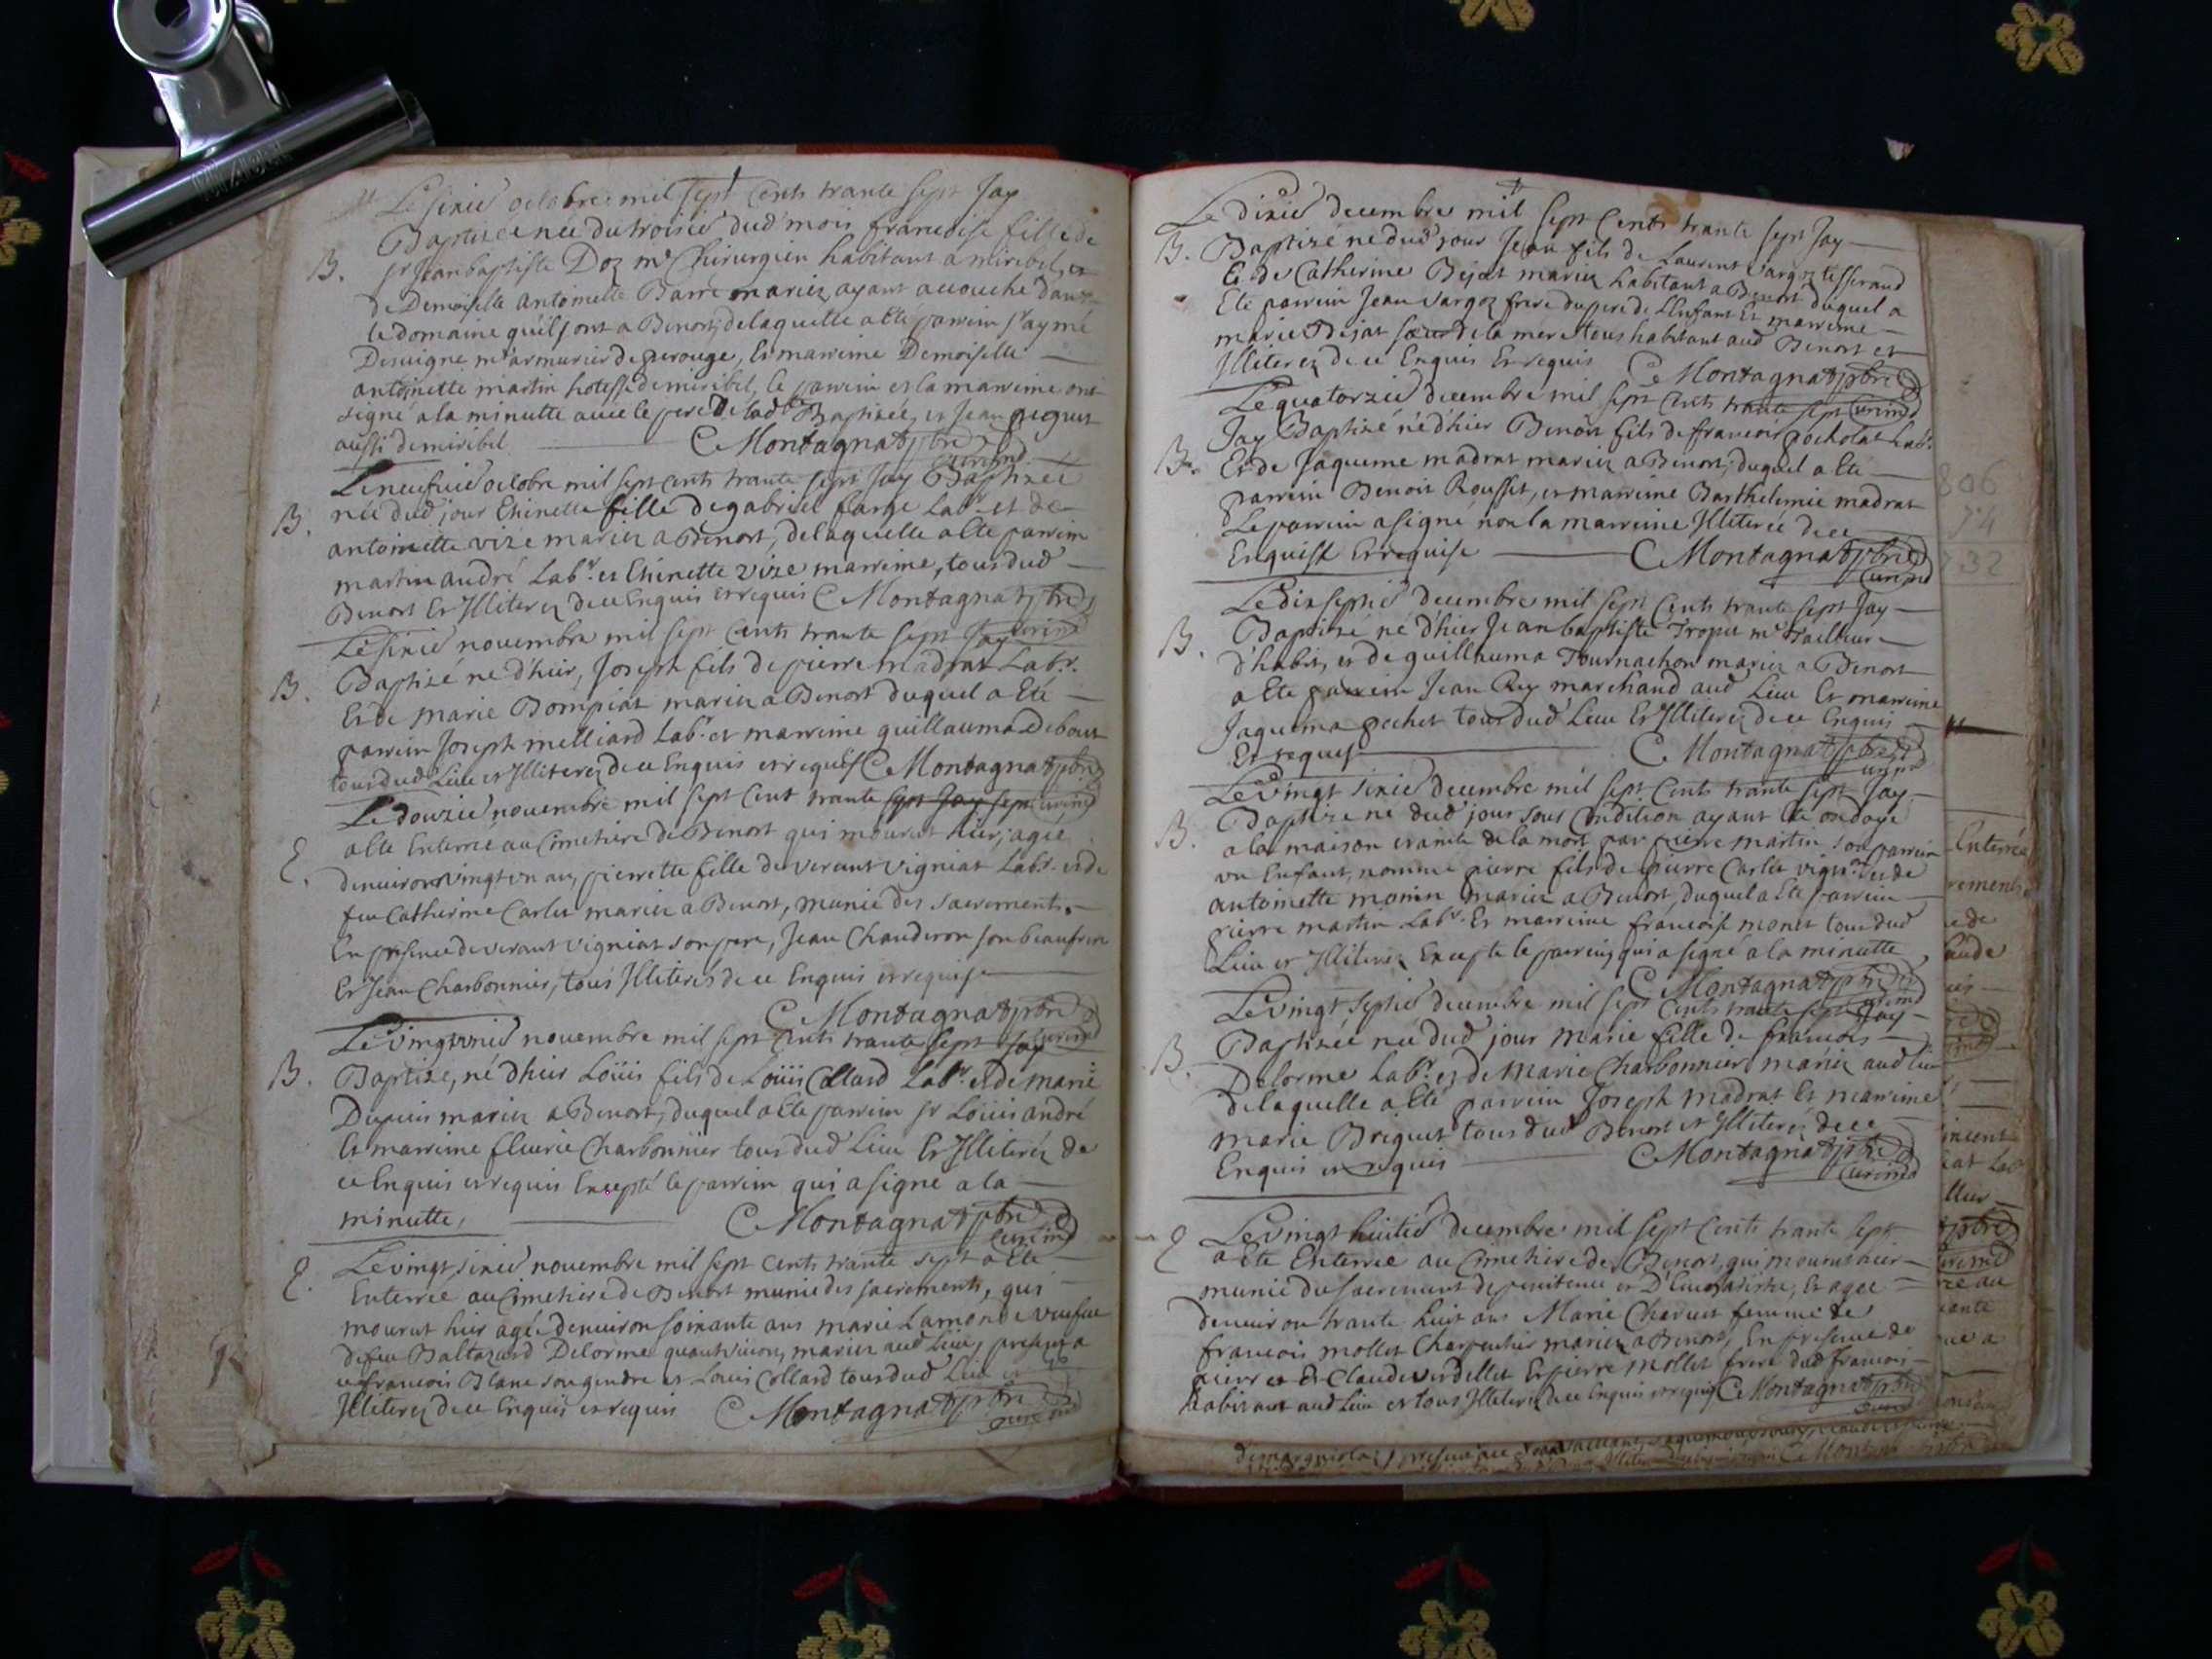 Le sixie octobre mil sept cents trante sept Jay
Baptizée née du troisie dud mois francoise fille de
B. sr Jean baptiste Doz me Chirurgien habitant a miribel, et
de Demoiselle antoinette Barre mariez, ayant accouche dans
le domaine qu'il sont a Benost; delaquelle a Ete parrein sr aymé
Desvigne me armurier de perouge, Et marreine Demoiselle
antoinette martin hotesse de miribel, le parrein et la marreine ont
signé a la minutte avec le pere de lad Baptizée, et Jean peguet
aussi de miribel C Montagnat ptre
curé md
Le neufvie octobre mil sept cents trante sept Jay Baptizée
B. née dud jour Etienette fille de gabriel farge Labr. et de
antoinette vize mariez a Benost, delaquelle a Ete parrein
martin andré Labr. et Etienette vize marreine, tous dud
Benost Et Illiterez de ce Enquis et requis C Montagnat ptre
curé md
Le sixie novembre mil sept cents trante sept Jay
B. Baptizé né d'hier, Joseph fils de pierre madrat Labr.
Et de Marie Bompiat mariez a Benost duquel a Eté
parrein Joseph melliard Labr. et marreine guillauma Debout
tous dud Lieu et Illiterez de ce Enquis et requis C Montagnat ptre
curé md
Le douzie novembre mil sept cent trante sept Jay sept
E. a Ete Enterré au Cimetiere de Benost qui mourut hier, agée
denviron vingt un an, pierrette fille de verant vigniat Labr. et de
feu Catherine Carlet mariez a Benost, munie des sacrements.
En presence de verant vigniat son pere, Jean Chanderon son beaufrere
Et Jean Charbonnier, tous Illiterés de ce Enquis et requis
C Montagnat ptre
curé md
Le vingt unie novembre mil sept cents trante sept Jay
B. Baptize, né d'hier Loüis fils de Loüis Collard Labr. et de marie
Dupuis mariez a Benost, duquel a Ete parrein sr Loüis andré
Et marreine fleurie Charbonnier tous dud Lieu Et Illiteréz de
ce Enquis et requis Excepté le parrein qui a signé a la
minutte, C Montagnat ptre
curé md
E. Le vingt sixie novembre mil sept cents trante sept a Ete
Enterrée au Cimetiere de Benost munie des sacrements, qui
mourut hier agée denviron soixante ans marie Lamonde veufve
de feu Baltazard Delorme quant vivion, mariez aud Lieu, present a
ce francois Blanc son gendre et Louis Collard tous dud Lieu et
Illiterez de ce Enquis et requis C Montagnat ptre
curé md
Le dixie decembre mil sept cents trante sept Jay
B. Baptizé né dud jour Jean fils de Laurent vargoz tisserand
Et de Catherine Bejat mariez habitant a Benost duquel a
Eté parrein Jean vargoz frere du pere de L'Enfant Et marreine
marie Bejat sœur de la mere tous habitant aud Benost et
Illiterez de ce Enquis Et requis C Montagnat ptre
curé md
Le quatorzie decembre mil sept cents trante sept
Jay Baptizé né d'hier Benoist fils de francois pocholat Labr.
B. Et de Jaqueme madrat mariez a Benost, duquel a Ete
parrein Benoit Rousset, et marreine Barthelemie madrat
Le parrein a signé non la marreine Illiterée de ce
Enquise Et requise C Montagnat ptre
curé md
Le dix septie decembre mil sept cents trante sept Jay
B. Baptizé né d'hier Jean baptiste Tropet me Tailleur
d'habit, et de guillauma Tournachon mariez a Benost
a Ete parrein Jean Rey marchand aud Lieu Et marreine
Jaquema pochet tous dud Lieu Et Illiterez de ce Enquis
Et requis C Montagnat ptre
curé md
Le vingt sixie decembre mil sept cents trante sept Jay
B. Baptize né dud jour sous Condition ayant Ete ondoyé
a la maison crainte de la mort par pierre martin son parrein
un Enfant, nommé pierre fils de pierre Carlet vigron et de
antoinette monin mariez a Benost, duquel a Ete parrein
pierre martin Labr. Et marreine francoise monet tous dud
Lieu et Illiterez Excepte le parrein, qui a signé a la minutte
C Montagnat ptre
curé md
Le vingt septie decembre mil sept cents trante sept Jay
B. Baptizée née dud jour Marie fille de francois
Delorme Labr. et de Marie Charbonnier mariez aud lieu
delaquelle a Eté parrein Joseph Madrat Et marreine
marie Briquet tous dud Benost et Illiterés de ce
Enquis et requis C Montagnat ptre
curé md
E Le vingt huitie decembre mil sept cents trante sept
a Ete Enterrée au Cimetiere de Benost, qui mourut hier
munie du sacrement de penitence et D'Eucharistie, Et agée
denviron trante huit ans Marie Charvet femme de
francois mollet Charpentier mariez a Benost, En presence de
pierre et de Claude verdellet Et pierre Mollet frere dud francois
habitant aud Lieu et tous Illiterez de ce Enquis et requis C Montagnat ptre
curé md
806
74
732
Enterrée